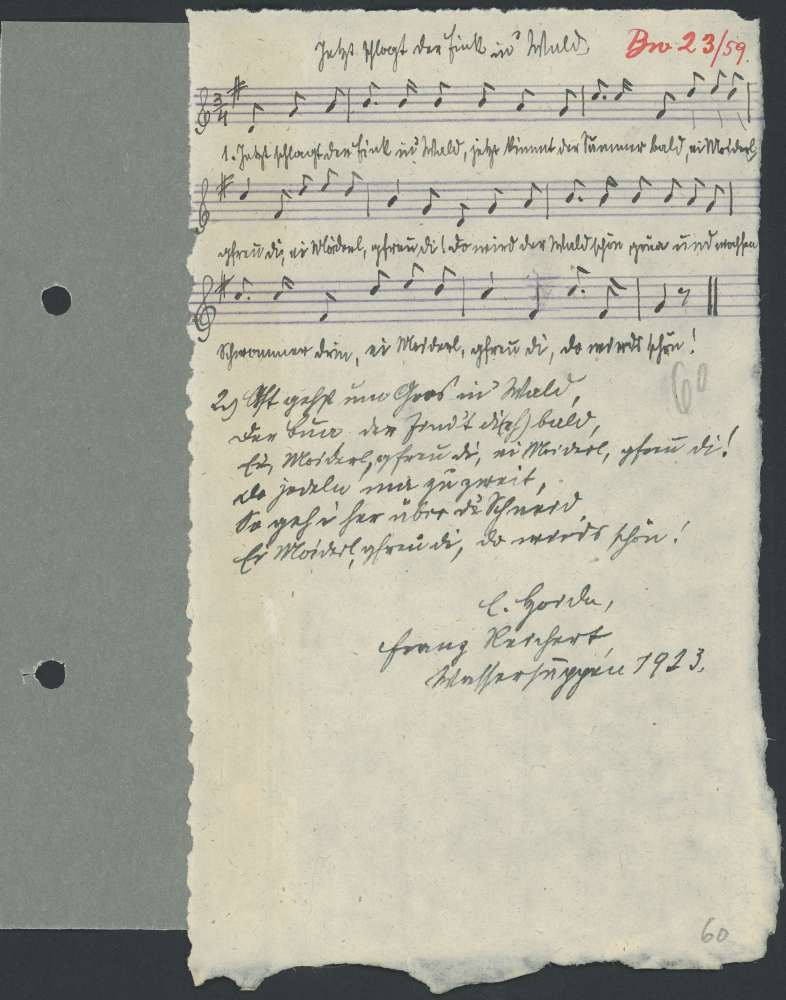 Jetzt schlagt der Fink in Wald
Bw 23/59.
3/4
1. Jetzt schlagt der Fink in Wald, jetzt kimmt der Summer bald, ei Moiderl,
gfreu di, ei Moiderl, gfreu di! Do wird der Wald schön grüa und wachsen
Schwammer drin, ei Moiderl, gfreu di, do wirds schön!
60
2.) Oft gehst um Gros in Wald,
der Bua der find't di(ch) bald,
Ei, Moiderl, gfreu di, ei Moiderl, gfreu di!
do jodeln ma zu zweit,
So geh i her über di Schneid,
Ei Moiderl, gfreu di, do wirds schön!
Franz Reichert,
Wassersuppen 1923.
60